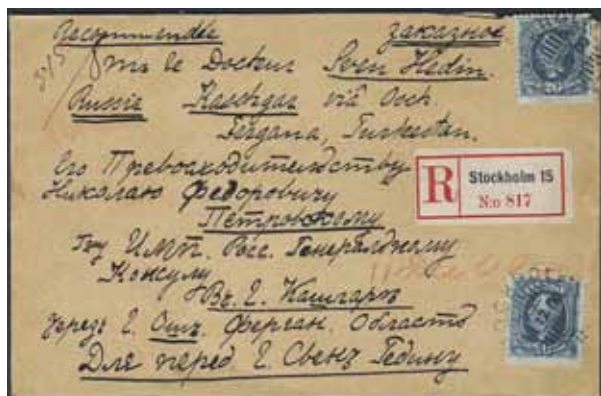 Recommandée заказное
Mr le Docteur Sven Hedin.
Russie Kaschgar via Osch
Fergana, Turkestan.
Его Превосходительству
Николаю Федоровичу
Петровскому
R Stockholm 15
N:o 817
Гну Имп. Росс. Генералдному
Консулу
Въ. Г. Кашгаръ
Черезъ Г. Ошъ. Ферган. Область
Для перед. Г. Свенъ Гедину